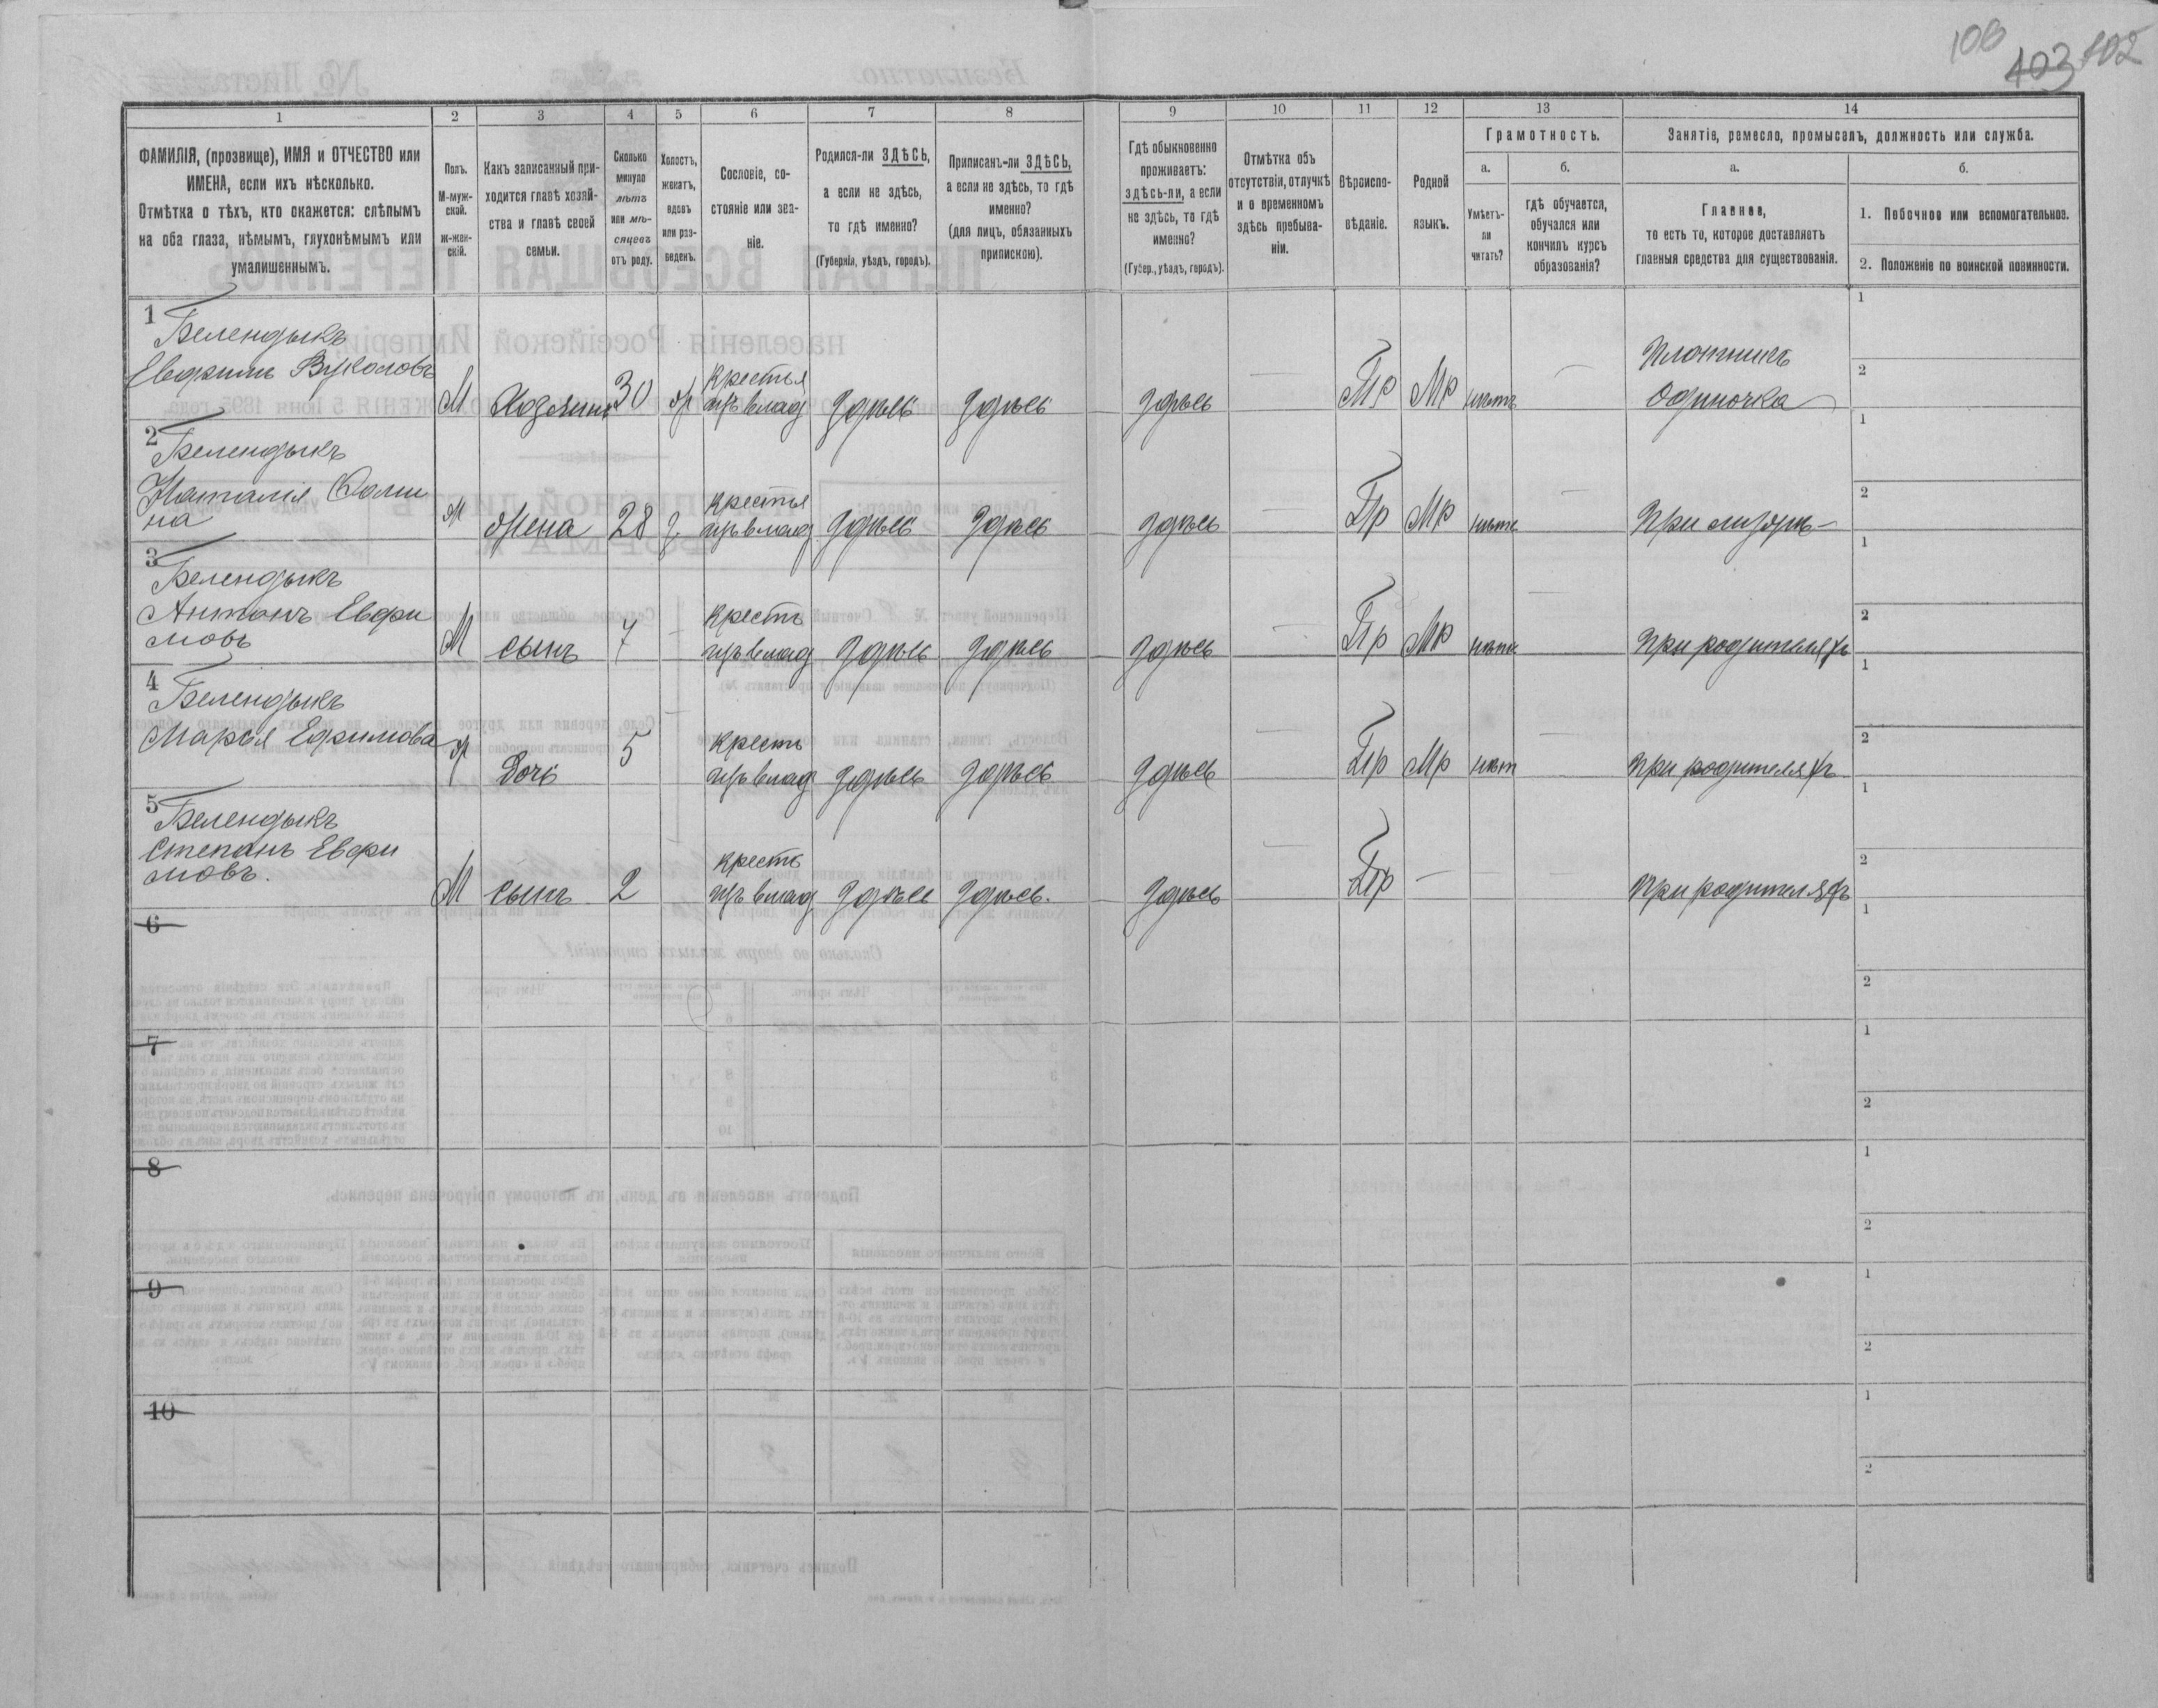 106
403 102
1 2 3 4 5 6 7 8 9 10 11 12 13 14
ФАМИЛІЯ, (прозвище), ИМЯ и ОТЧЕСТВО или
ИМЕНА, если ихъ нѣсколько.
Отмѣтка о тѣхъ, кто окажется: слѣпымъ
на оба глаза, нѣмымъ, глухонѣмымъ или
умалишеннымъ.
Полъ.
М-муж-
ской.
ж-жен-
скій.
Какъ записанный при-
ходится главѣ хозяй-
ства и главѣ своей
семьи.
Сколько
минуло
лѣтъ
или мѣ-
сяцевъ
отъ роду.
Холостъ,
женатъ,
вдовъ
или раз-
веденъ.
Сословіе, со-
стояніе или зва-
ніе.
Родился-ли ЗДѢСЬ,
а если не здѣсь,
то гдѣ именно?
(Губернія, уѣздъ, городъ).
Приписанъ-ли ЗДѢСЬ,
а если не здѣсь, то гдѣ
именно?
(для лицъ, обязанныхъ
припискою).
Гдѣ обыкновенно
проживаетъ:
здѣсь-ли, а если
не здѣсь, то гдѣ
именно?
(Губер., уѣздъ, городъ).
Отмѣтка объ
отсутствіи, отлучкѣ
и о временномъ
здѣсь пребыва-
ніи.
Вѣроиспо-
вѣданіе.
Родной
языкъ.
Грамотность.
а.
Умѣетъ-
ли
читать?
б.
гдѣ обучается,
обучался или
кончилъ курсъ
образованія?
Занятіе, ремесло, промыселъ, должность или служба.
а.
Главное,
то есть то, которое доставляетъ
главныя средства для существованія.
б.
1. Побочное или вспомогательное.
2. Положеніе по воинской повинности.
1
Белендыкъ
Евфимъ Вуколовъ
М Хозяинъ 30 ж Крестья
нъ влад здѣсь здѣсь здѣсь — Пр Мр нѣтъ —
Плотникъ
Одиночка
1
2
2
Белендыкъ
Наталія Фоми
на
ж жена 28 з. крестья
нъ влад здѣсь здѣсь здѣсь — Пр Мр нѣтъ — При мужѣ
1
2
3
Белендыкъ
Антонъ Евфи
мовъ
М сынъ 7 — кресть
нъ влад здѣсь здѣсь здѣсь — Пр Мр нѣтъ — при родителяхъ
1
2
4
Белендыкъ
Марія Ефимова
ж дочь 5 — кресть
нъ влад здѣсь здѣсь здѣсь — Пр Мр нѣт — при родителяхъ
1
2
5
Белендыкъ
Степанъ Евфи
мовъ.
М сынъ 2 кресть
нъ влад здѣсь здѣсь. здѣсь — Пр — — — При родителяхъ
1
2
6
1
2
7
1
2
8
1
2
9
1
2
10
1
2